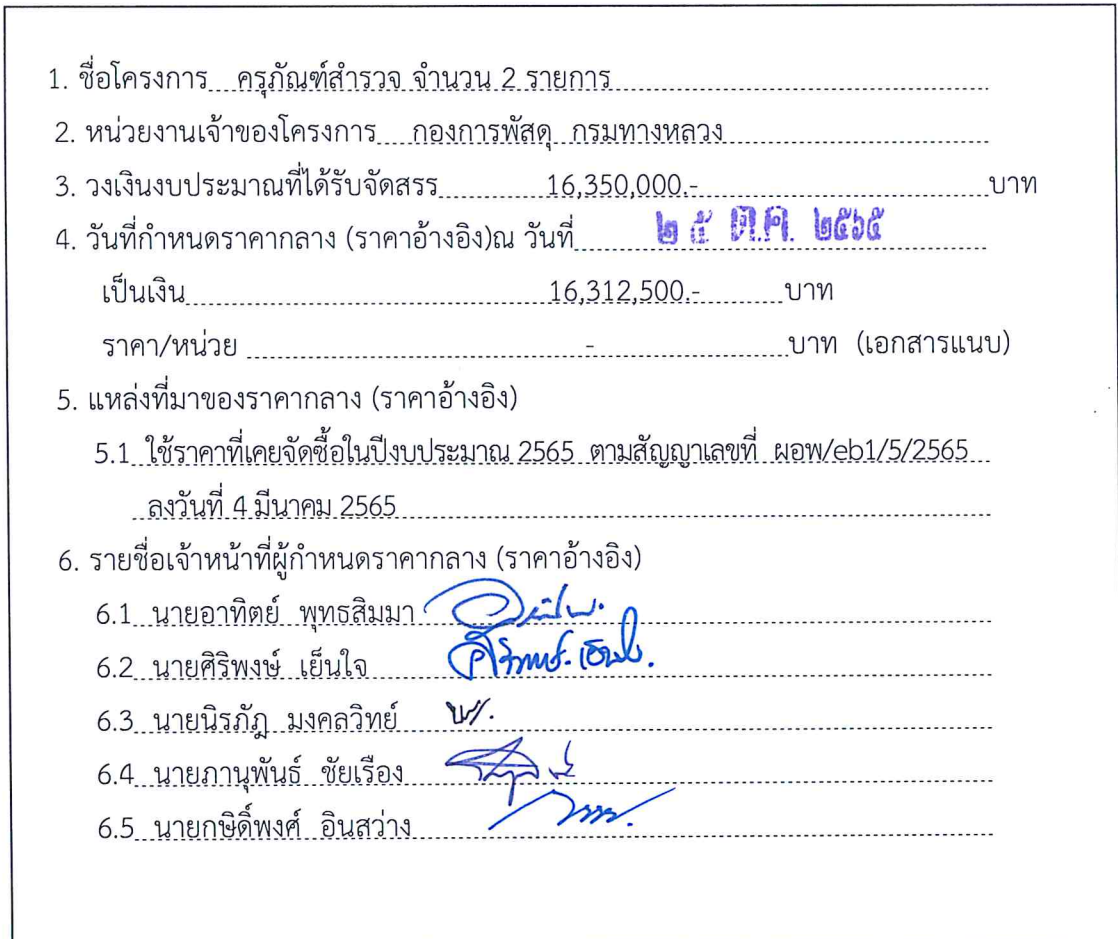 1. ชื่อโครงการ ครุภัณฑ์สำรวจ จำนวน 2 รายการ
2. หน่วยงานเจ้าของโครงการ กองการพัสดุ กรมทางหลวง
3. วงเงินงบประมาณที่ได้รับจัดสรร 16,350,000.- บาท
4. วันที่กำหนดราคากลาง (ราคาอ้างอิง)ณ วันที่ ๒๕ ต.ค. ๒๕๖๕
เป็นเงิน 16,312,500.- บาท
ราคา/หน่วย - บาท (เอกสารแนบ)
5. แหล่งที่มาของราคากลาง (ราคาอ้างอิง)
5.1 ใช้ราคาที่เคยจัดซื้อในปีงบประมาณ 2565 ตามสัญญาเลขที่ ผอพ/eb1/5/2565
ลงวันที่ 4 มีนาคม 2565
6. รายชื่อเจ้าหน้าที่ผู้กำหนดราคากลาง (ราคาอ้างอิง)
6.1 นายอาทิตย์ พุทธสิมมา
6.2 นายศิริพงษ์ เย็นใจ
6.3 นายนิรภัฎ มงคลวิทย์
6.4 นายภานุพันธ์ ชัยเรือง
6.5 นายกษิดิ์พงศ์ อินสว่าง